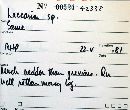 No 00591 42333
Laccaria sp.
Same
RHP 22-V -81
Much redder than previous. On
well rotten mossy log.